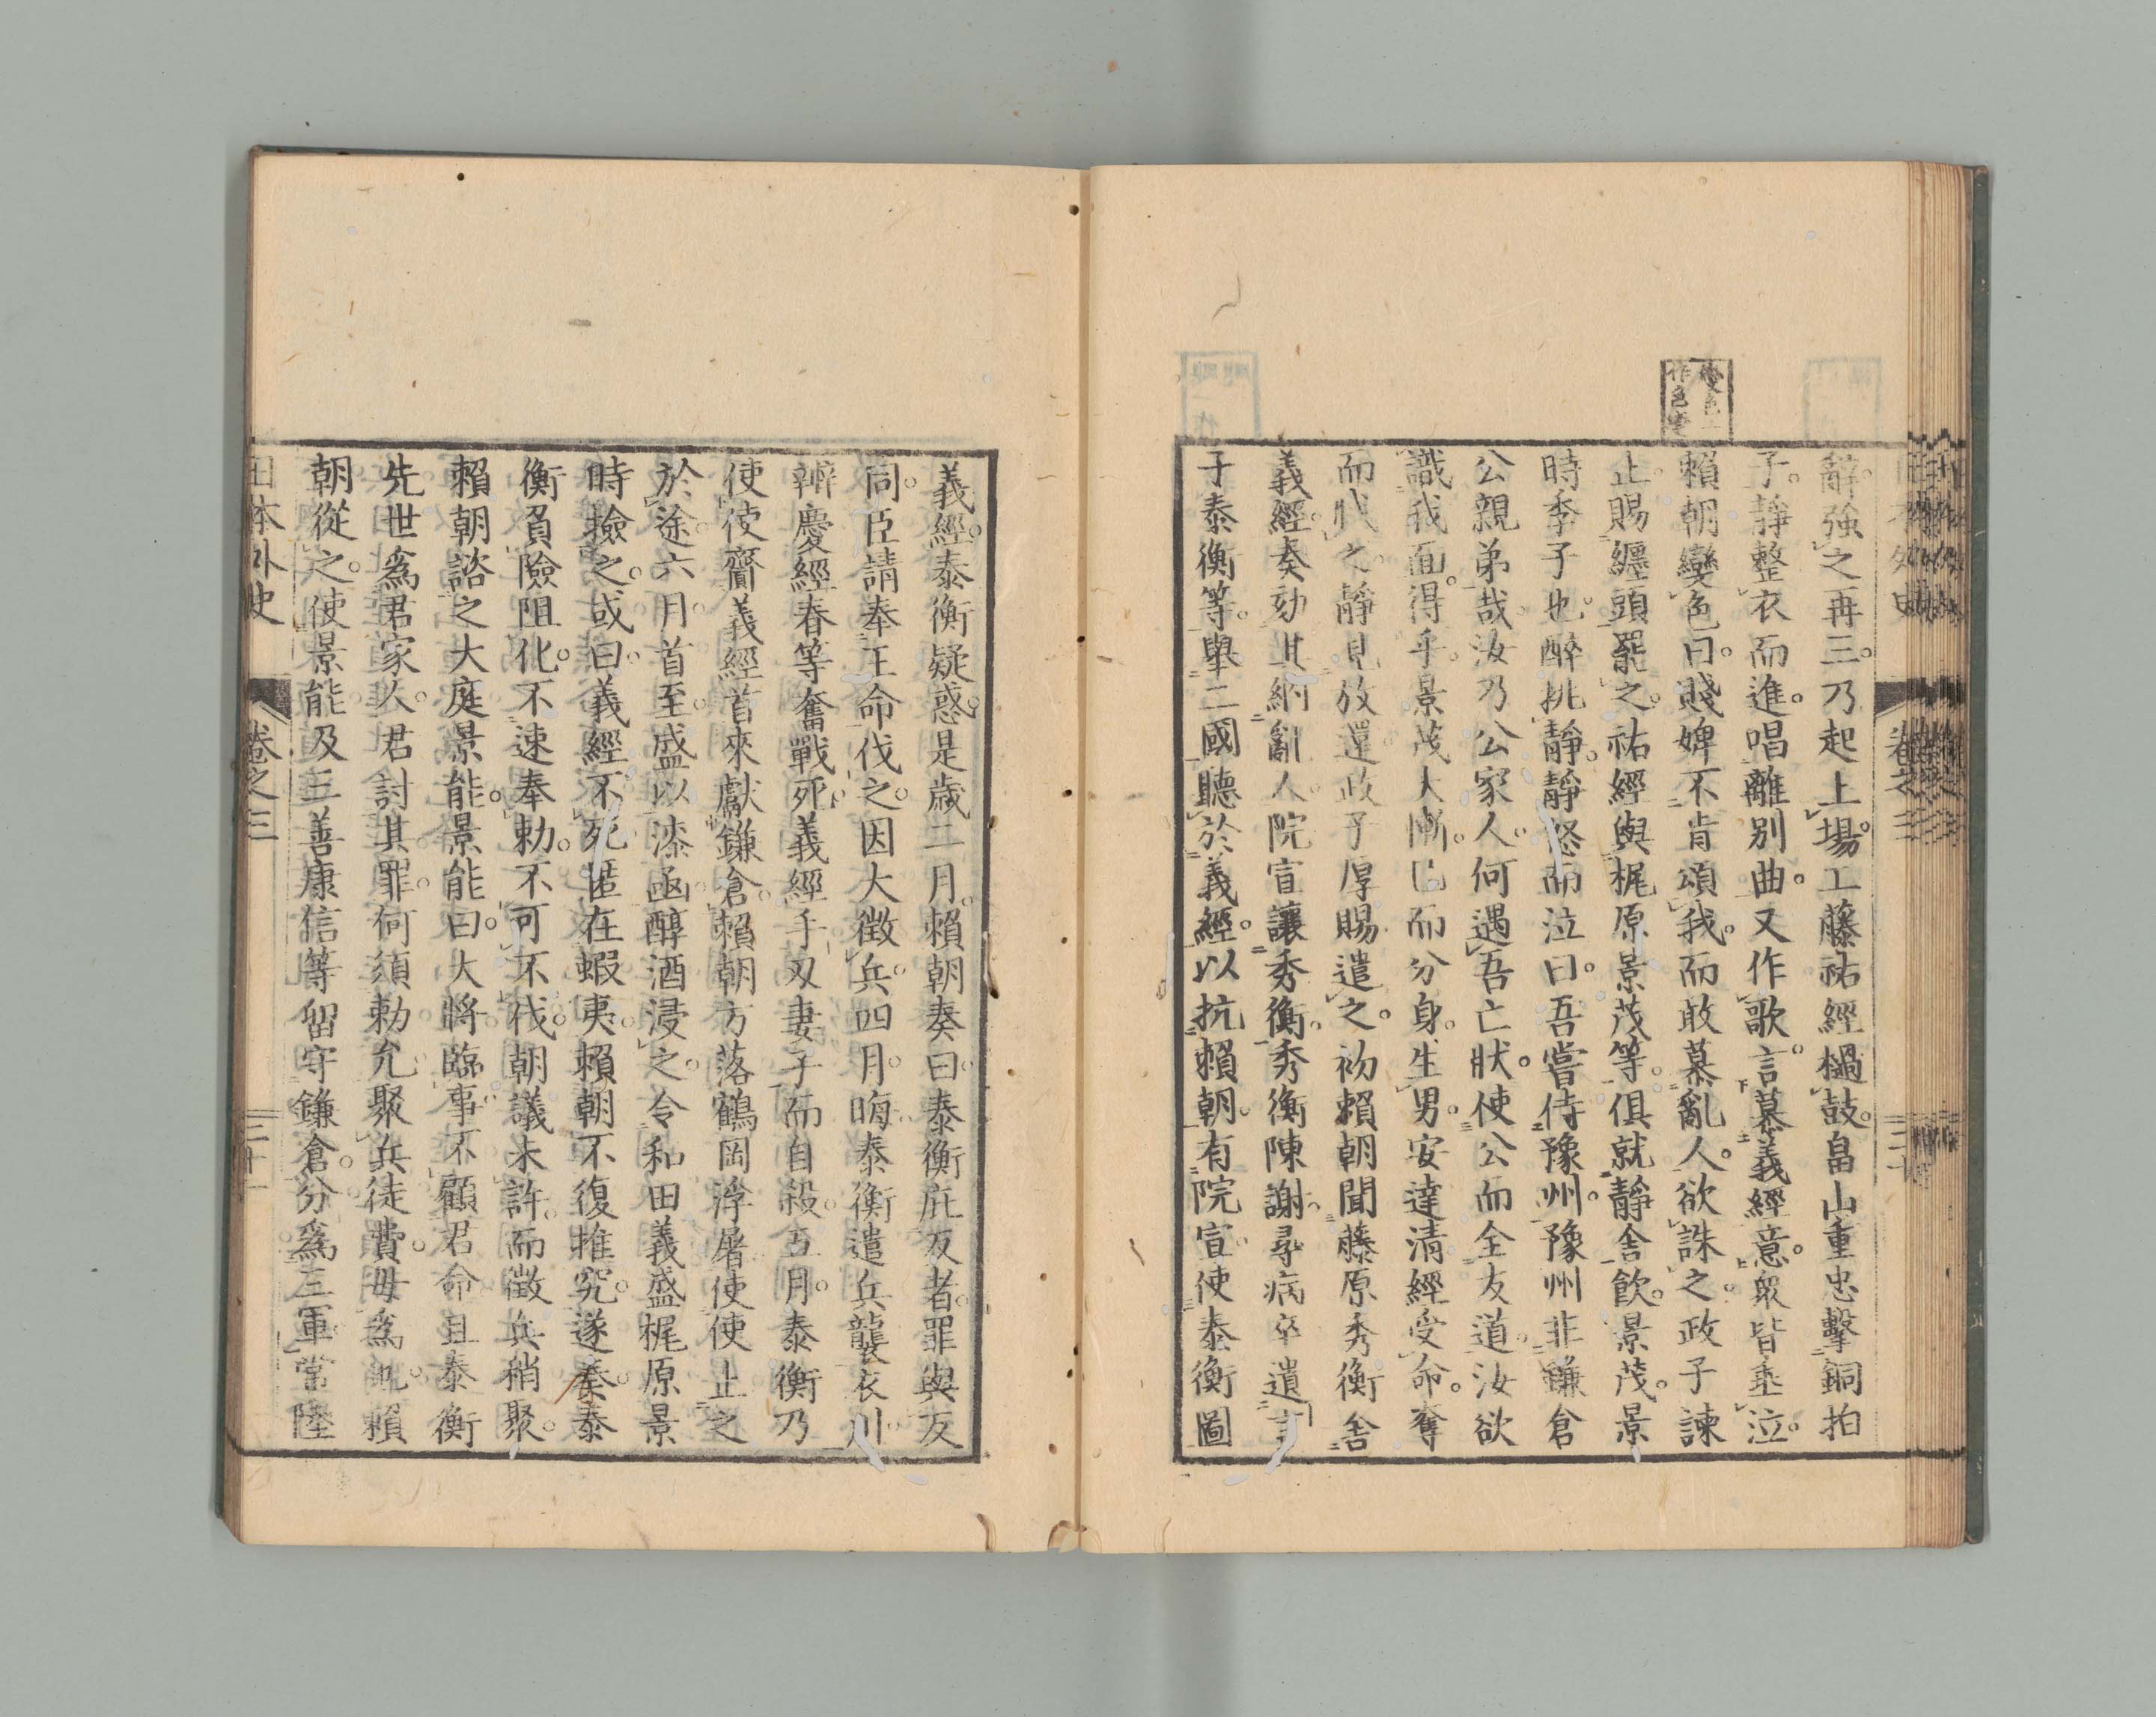 辭強之再三。乃起上場。工藤祐經檛鼓。畠山重忠擊銅拍
子。靜整衣而進。唱離別曲。又作歌。言慕義經意。衆皆垂泣。
賴朝變色曰。賤婢不肯頌我。而敢慕亂人。欲誅之。政子諫
止。賜纏頭罷之。祐經與梶原景茂等。俱就靜舍飲。景茂。景
時季子也。醉挑靜。靜怒而泣曰。吾嘗侍豫州。豫州非鎌倉
公親弟哉。汝乃公家人。何遇吾亡狀。使公而全友道。汝欲
識我面。得乎。景茂大慚。已而分身。生男。安達淸經受命。奪
而戕之。靜見放還。政子厚賜遣之。初賴朝聞藤原秀衡舍
義經。奏劾其納亂人。院宣讓秀衡。秀衡陳謝。尋病卒。遺言
子泰衡等。舉二國聽於義經。以抗賴朝。有院宣。使泰衡圖
義經。泰衡疑惑。是歲二月。賴朝奏曰。泰衡庇反者。罪與反
同。臣請奉王命伐之。因大徵兵。四月。晦。泰衡遣兵襲衣川。
辨慶經春等奮戰死。義經手刃妻子而自殺。五月。泰衡乃
使使齎義經首來獻鎌倉。賴朝方落鶴岡浮屠。使使止之
於途。六月。首至。盛以漆函。醇酒浸之。令和田義盛梶原景
時撿之。或曰。義經不死。匿在蝦夷。賴朝不復推究。遂奏泰
衡負險阻化。不速奉勅。不可不伐。朝議未許。而徵兵稍聚。
賴朝諮之大庭景能。景能曰。大將臨事。不顧君命。且泰衡
先世爲君家人。君討其罪。何須勅允。聚兵徒費。毋爲也。賴
朝從之。使景能及三善康信等留守鎌倉。分爲三軍。常陸
日本外史
卷之三
三十一